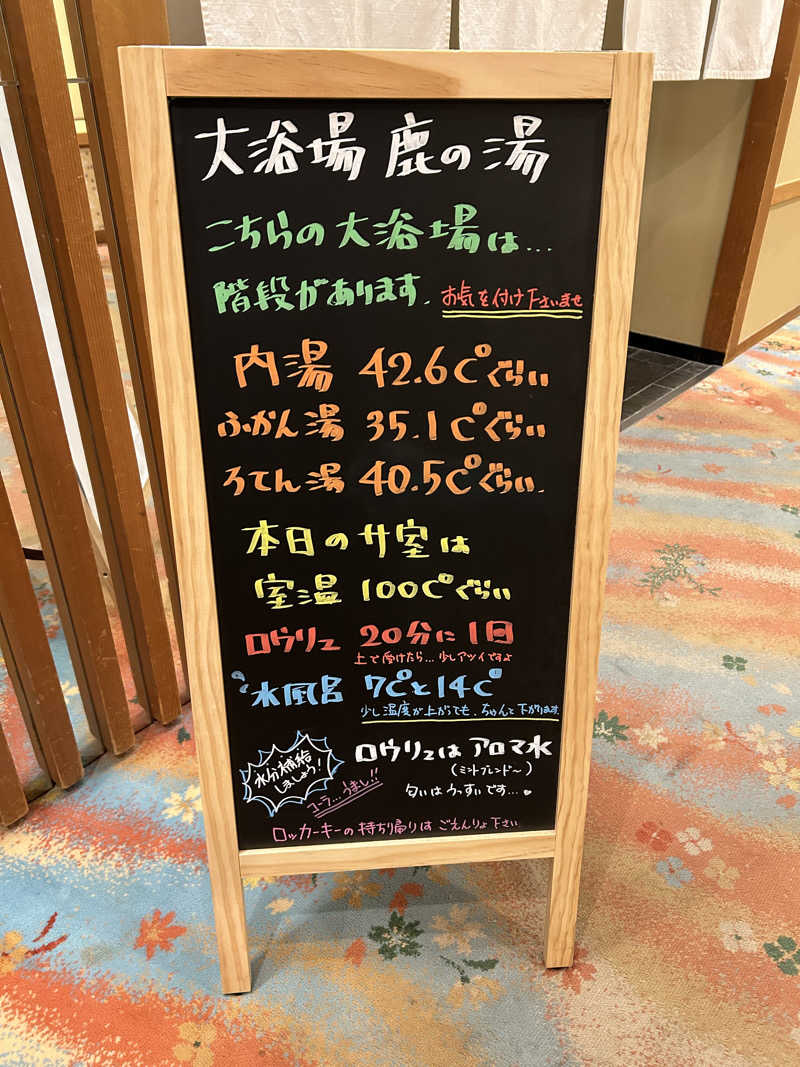 大浴場 鹿の湯
こちらの大浴場は...
階段があります. お気を付け下さいませ
内湯 42.6C°ぐらい
ふかん湯 35.1C°ぐらい
ろてん湯 40.5C°ぐらい.
本日のサ室は
室温 100C°ぐらい
ロウリュ 20分に1回
上で受けたら...少しアツイですよ
水風呂 7C°と14C°
少し温度が上がっても、ちゃんと下がります.
水分補給
しましょう!
コーラ...うまし!!
ロウリュは アロマ水
(ミントブレンド〜)
匂いはうっすいです...
ロッカーキーの持ち帰りは ごえんりょ下さい